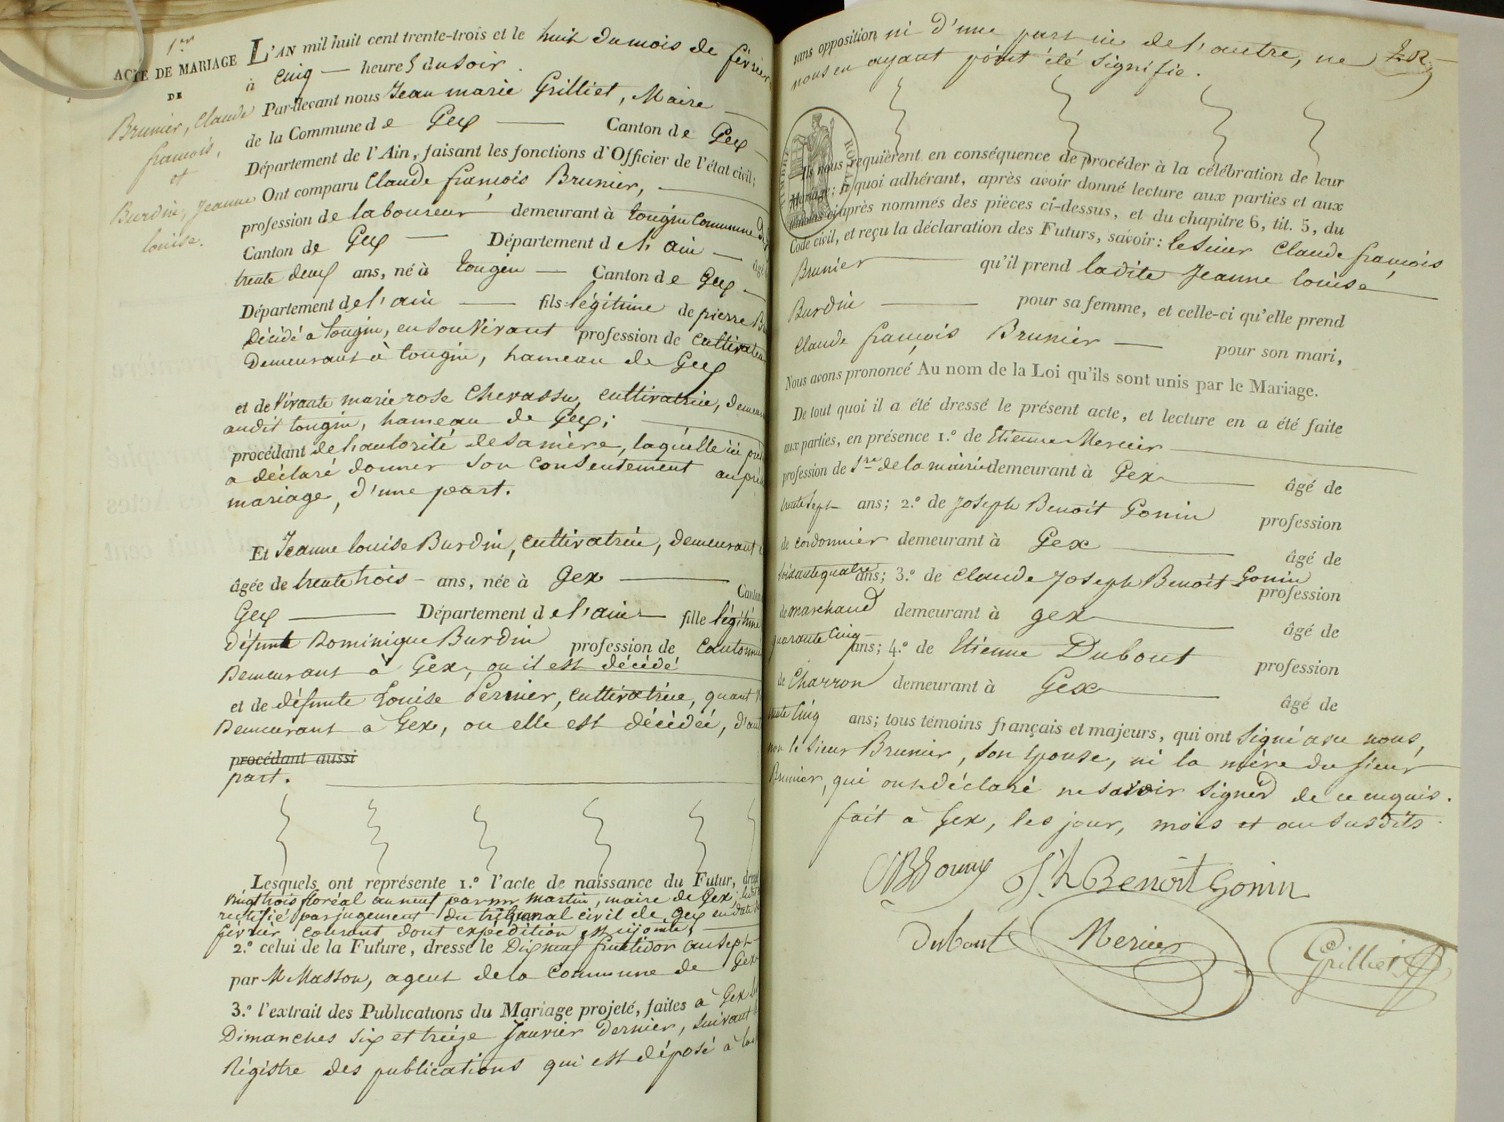 1er
ACTE DE MARIAGE
DE
Brunier, Claude
françois,
et
Burdin, Jeanne
louise.
L'AN mil huit cent trente-trois et le huit du mois de février
à cinq — heures du soir.
Par-devant nous Jean marie Grilliet, Maire
de la Commune de Gex — Canton de Gex
Département de l'Ain, faisant les fonctions d'Officier de l'état civil;
Ont comparu Claude françois Brunier,
profession de laboureur demeurant à tougin Commune
Canton de Gex — Département de l'ain — âgé
trente deux ans, né à tougin — Canton de Gex
Département de l'ain — fils légitime de pierre
Décédé à tougin, en son vivant profession de cultivateur
Demeurant à tougin, hameau de Gex
et de vivante marie rose Chevassu, cultivatrice,
audit tougin, hameau de Gex;
procédant de l'autorité de sa mère, laquelle ici
a déclaré donner son consentement au
mariage, d'une part.
Et Jeanne louise Burdin, cultivatrice, demeurant
âgée de trente trois - ans, née à Gex — Canton
Gex — Département de l'ain — fille légitime
défunt Dominique Burdin profession de
Demeurant à Gex, ou il est décédé
et de défunte Louise Pernier, cultivatrice, quant
Demeurant à Gex, ou elle est décédée,
procédant aussi
part.
Lesquels ont représenté 1.º l'acte de naissance du Futur,
vingt trois floréal an neuf par mr martin, maire de Gex
rectifié par jugement du tribunal civil de Gex en date
février courant dont expédition est ci jointe;
2.º celui de la Future, dressé le Dix neuf fructidor an sept
par Mr Masson, agent de la Commune de Gex
3.º l'extrait des Publications du Mariage projeté, faites à Gex
Dimanches six et treize Janvier dernier, suivant
Régistre des publications qui est déposé à
sans opposition ni d'une part ni de l'autre, ne
nous en ayant point été signifié.
TIMBRE ROYAL
Ils nous requièrent en conséquence de procéder à la célébration de leur
Mariage; à quoi adhérant, après avoir donné lecture aux parties et aux
témoins ci-après nommés des pièces ci-dessus, et du chapitre 6, tit. 5, du
Code civil, et reçu la déclaration des Futurs, savoir: le sieur Claude françois
Brunier — qu'il prend ladite Jeanne louise
Burdin — pour sa femme, et celle-ci qu'elle prend
Claude françois Brunier — pour son mari,
Nous avons prononcé Au nom de la Loi qu'ils sont unis par le Mariage.
De tout quoi il a été dressé le présent acte, et lecture en a été faite
aux parties, en présence 1.º de Etienne Mercier
profession de Sre de la mairie demeurant à Gex — âgé de
trente sept ans; 2.º de Joseph Benoit Gonin profession
de cordonnier demeurant à Gex — âgé de
soixante quatre ans; 3.º de Claude Joseph Benoit Gonin profession
de marchand demeurant à gex — âgé de
quarante cinq ans; 4.º de Etienne Dubout profession
de Charron demeurant à Gex — âgé de
trente cinq ans; tous témoins français et majeurs, qui ont signé avec nous,
non le sieur Brunier, son épouse, ni la mère du sieur
Brunier, qui ont déclaré ne savoir signer de ce enquis.
fait à Gex, les jour, mois et an susdits.
Jh Benoit Gonin
Dubout Mercier Grilliet